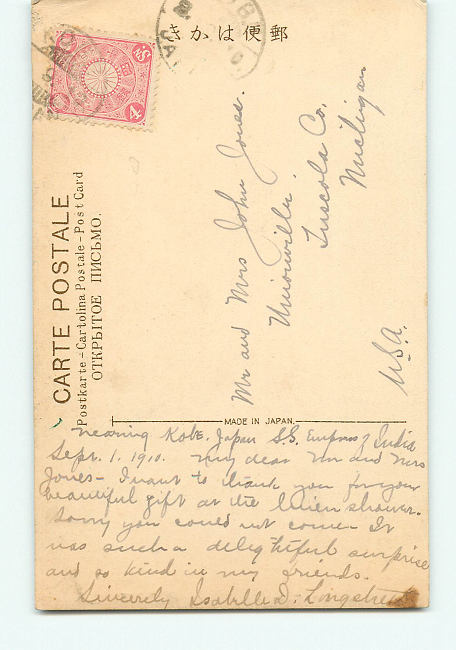 きかは便郵
CARTE POSTALE
Postkarte - Cartolina Postale - Post Card
ОТКРЫТОЕ ПИСЬМО.
Mr and Mrs John Jones.
Unionville
Tuscola Co.
Michigan
U.S.A.
MADE IN JAPAN.
nearing Kobe, Japan S.S. Empress of India
Sept. 1. 1910. My dear Mr and Mrs
Jones - I want to thank you for your
beautiful gift at the linen shower.
Sorry you could not come - It
was such a delightful surprise
and so kind in my friends.
Sincerely Isabelle D. Longstreet